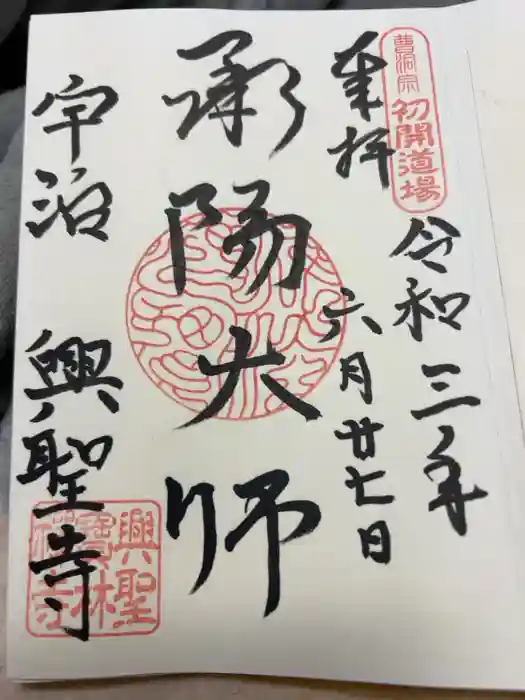 曹洞宗
初開道場
奉拝
令和三年
六月廿七日
承陽大師
宇治
興聖寺
興聖
寶林
禅寺